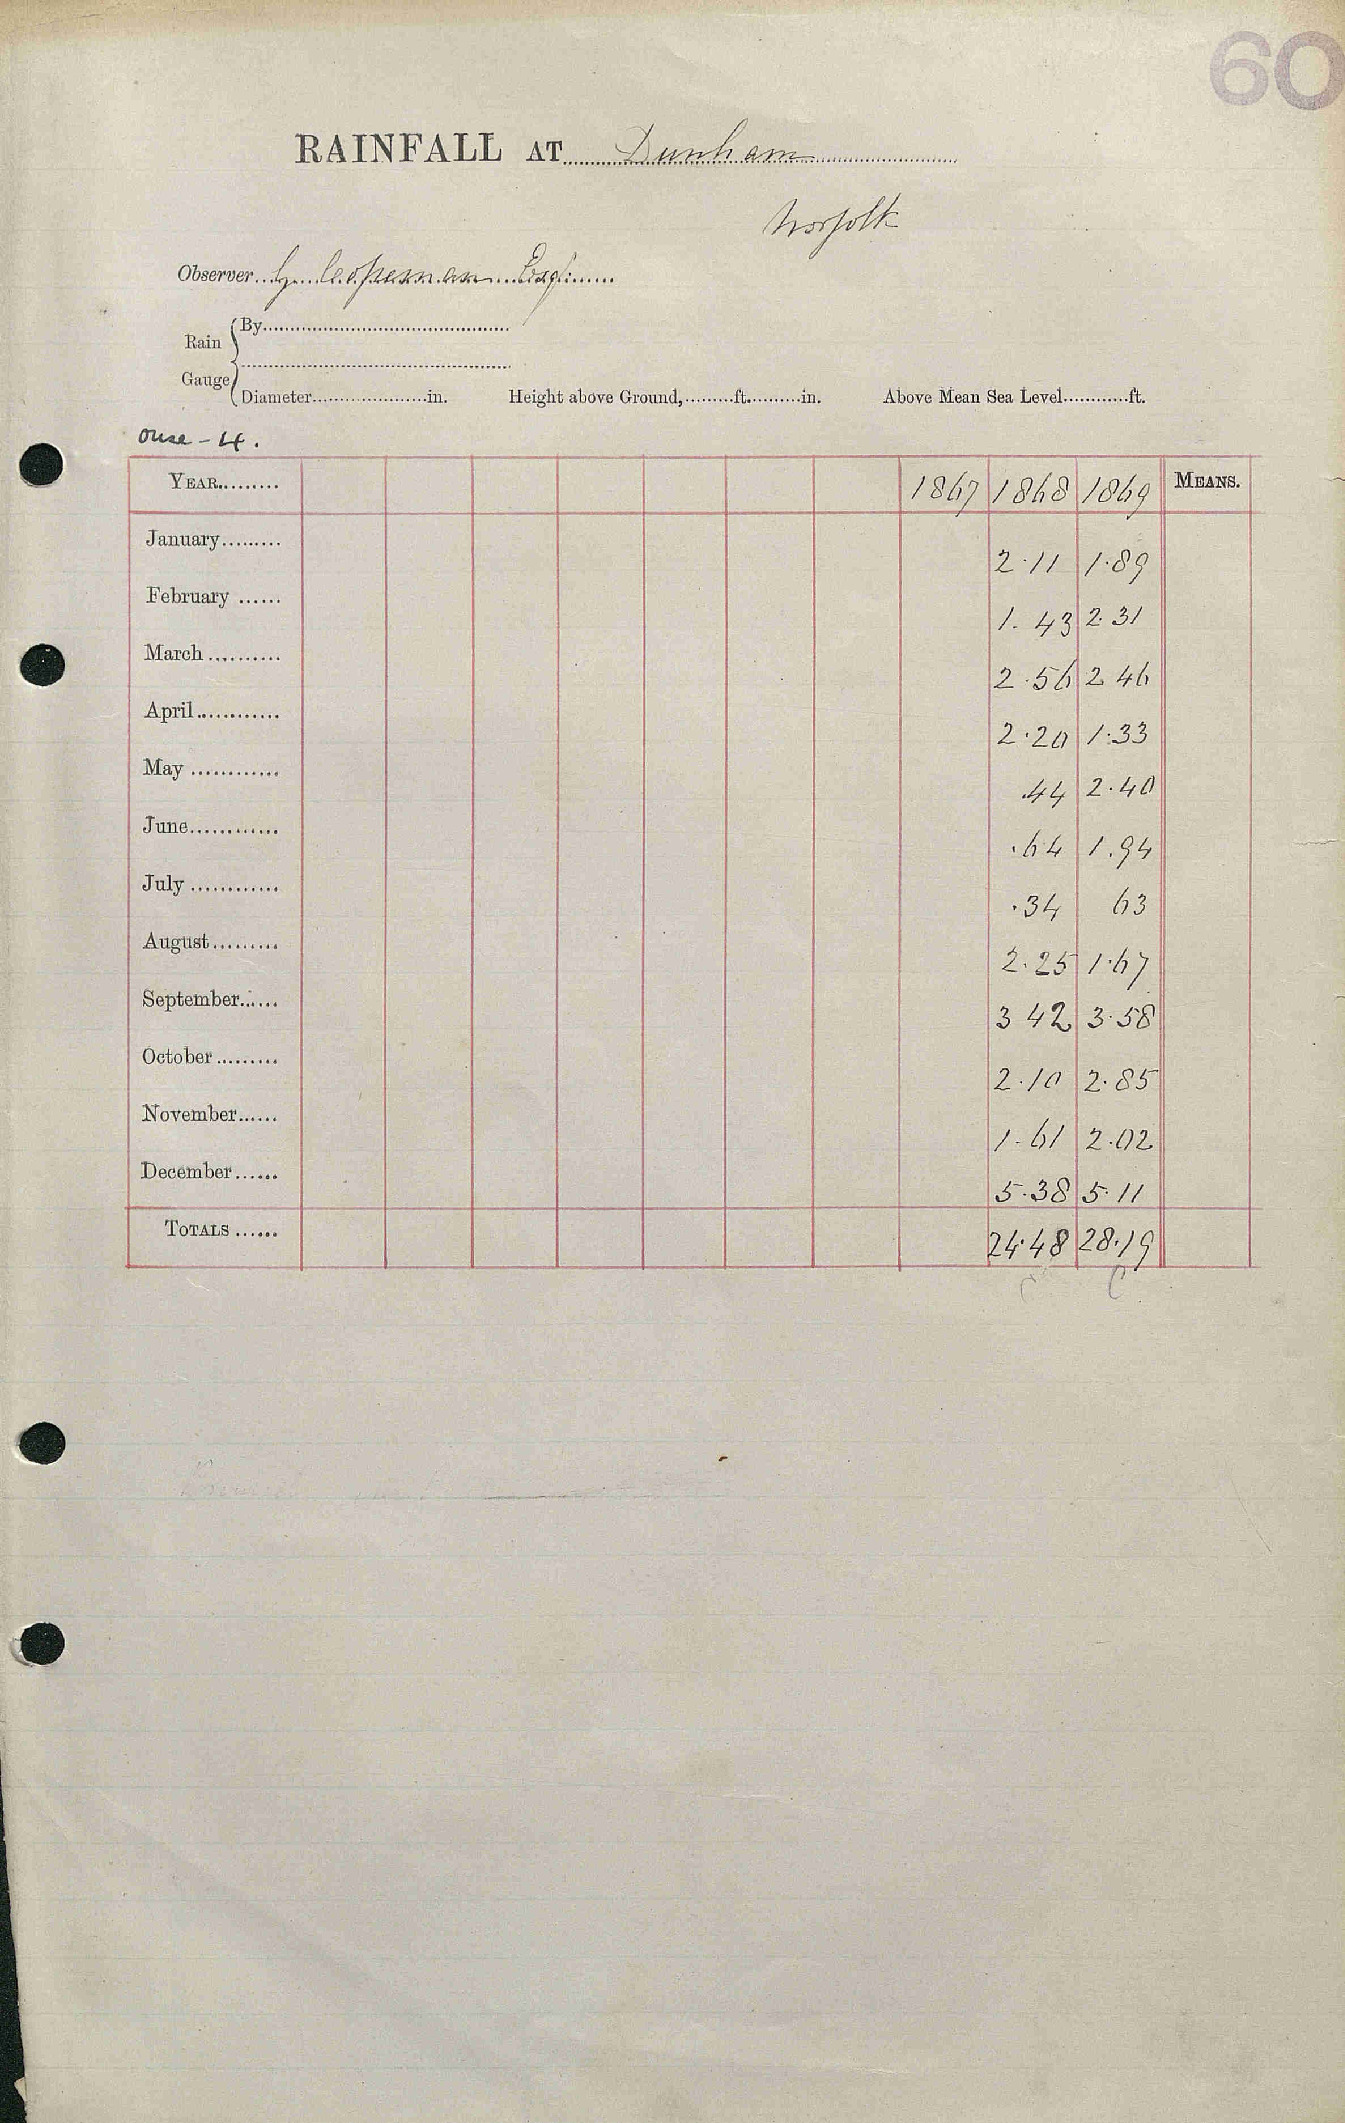 60
RAINFALL AT Dunham
Norfolk
Observer G. Copeman Esq
Rain Gauge
By
Diameter in. Height above Ground, ft. in. Above Mean Sea Level ft.
Ouse - 4.
YEAR 1867 1868 1869 MEANS.
January 2.11 1.89
February 1.43 2.31
March 2.56 2 46
April 2.20 1.33
May .44 2.40
June .64 1.94
July .34 63
August 2.25 1.67
September 3 42 3.58
October 2.10 2.85
November 1.61 2.02
December 5.38 5.11
TOTALS 24.48 28.19